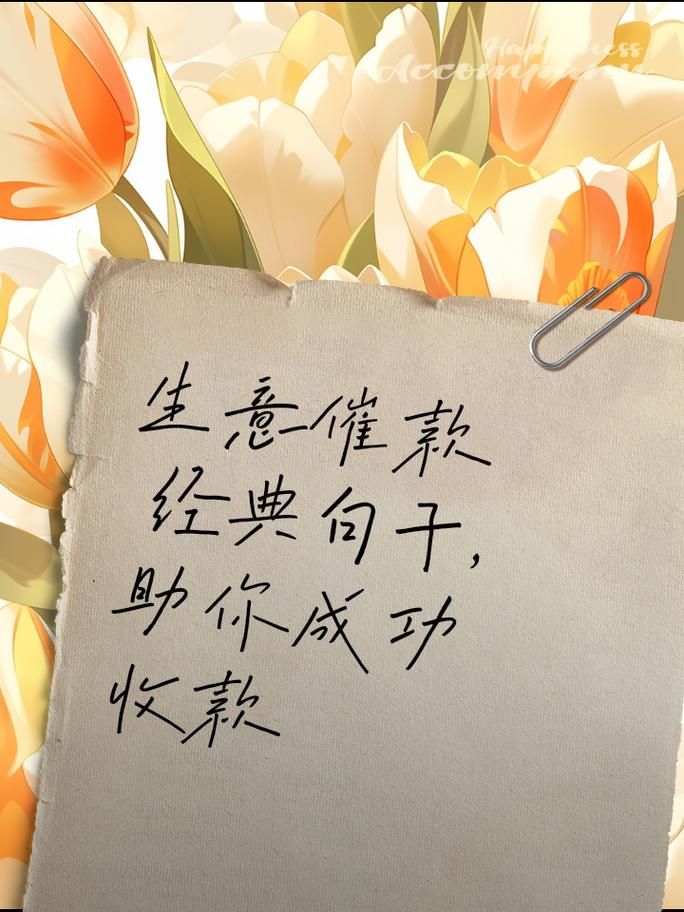 Happiness
Accompany
生意催款
经典句子,
助你成功
收款